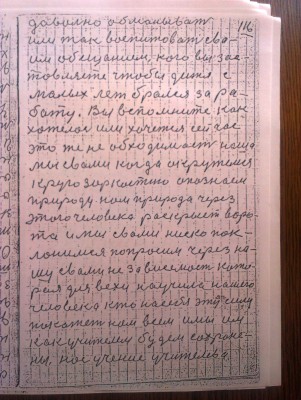 116
даволно обманыват
или так воспитоват сво-
им обещанием, кого вы зас-
товляете чтобы дитя с
малых лет брался за ра-
боту. Вы вспомните как
хотелос или хочется сейчас
это же необходимост наша
мы свами когда окружемся
кругозоркастию опознаем
природу нам природа через
этого человека раскроет воро-
та и мы свами ниско пок-
лонимся попросим через на-
шу свами не зависемост кото-
рая для всех научила нашего
человека кто нас эту силу
покажет нам всем имы им
как учителем будем сохране-
ны. нас учение учительва